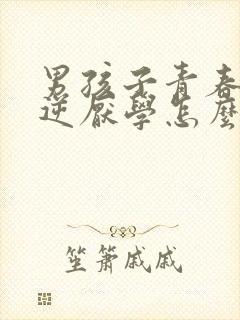 男孩子青春
逆厭學怎麼
笙簫戚戚